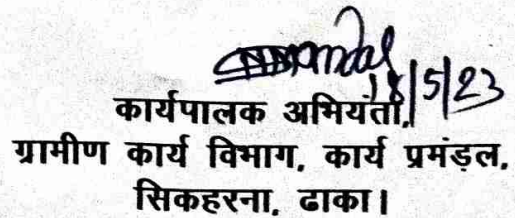 18/5/23
कार्यपालक अभियंता,
ग्रामीण कार्य विभाग, कार्य प्रमंड़ल,
सिकहरना, ढाका।